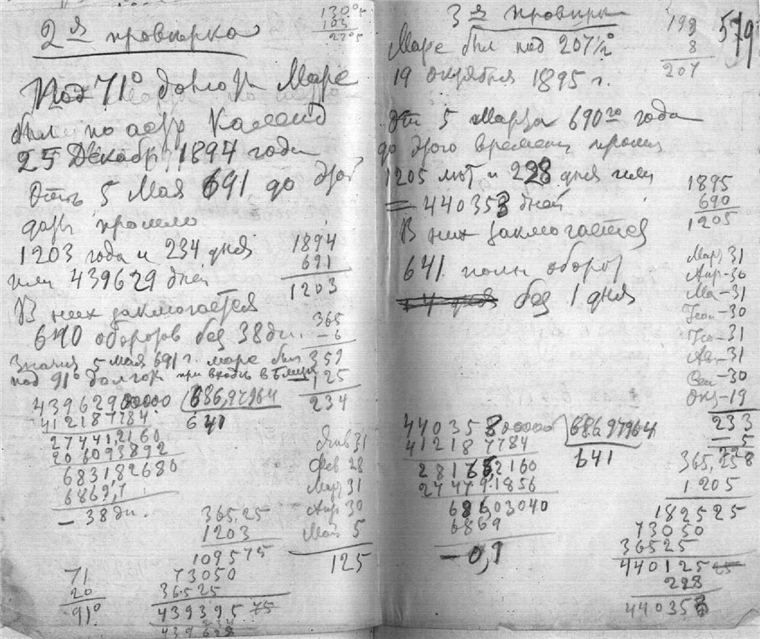 2я провѣрка
130°5
103
27°5
Под 71° долгот Марс
был по астр Календ
25 Декабр 1894 года
Отъ 5 Мая 691 до этой
даты прошло
1203 года и 234 дня
или 439629 дней
В них заключается
640 оборотов без 38 дн.
Значит 5 мая 691 г. марс был
под 91° долготы при входе в
43962900000 | 686,97964
412187784
640
274412160
206093892
683182680
6869,7
– 38 дн.
1894
691
1203
365
– 6
359
125
234
Янв 31
Фев 28
Март 31
Апр 30
Май 5
125
365,25
1203
109575
73050
36525
439395 75
439628
71
20
91°
3я провѣрка
Марс был под 207½°
19 октября 1895 г.
199
8
207
579
От 5 Марта 690го года
до этого времени прошло
1205 лет и 228 дня или
= 440353 дней
В них заключается
641 полн оборот
без 1 дня
1895
690
1205
Март 31
Апр – 30
Ма – 31
Іюн – 30
Іюл – 31
Ав – 31
Сен – 30
Окт – 19
233
– 5
228
44035300000 | 686,97964
412187784
641
281652160
274791856
68603040
6869
– 0,9
365,25
1205
182525
73050
36525
440125
228
440353